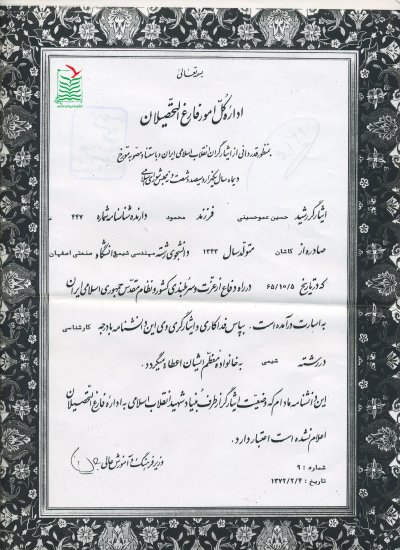 بسمه تعالی
اداره کل امور فارغ التحصیلان
بمنظور قدردانی از ایثارگران انقلاب اسلامی ایران و باستناد مصوبه مورخ
دیماه سال یکهزار و سیصد و شصت و
ایثارگر رشید حسین عموحسینی فرزند محمود دارنده شناسنامه شماره ۴۴۷
صادره از کاشان متولد سال ۱۳۴۳ دانشجوی رشته مهندسی شیمی دانشگاه صنعتی اصفهان
که در تاریخ ۶۵/۱۰/۵ در راه دفاع از عزت و سربلندی کشور و نظام مقدس جمهوری اسلامی ایران
به اسارت درآمده است. بپاس فداکاری و ایثارگری وی این دانشنامه با درجه کارشناسی
در رشته شیمی به خانواده معظم ایشان اعطاء میگردد.
این دانشنامه مادام که وضعیت ایثارگر از طرف بنیاد شهید انقلاب اسلامی به اداره فارغ التحصیلان
اعلام نشده است اعتبار دارد.
وزیر فرهنگ و آموزش عالی
شماره : ۹
تاریخ : ۱۳۷۲/۲/۴